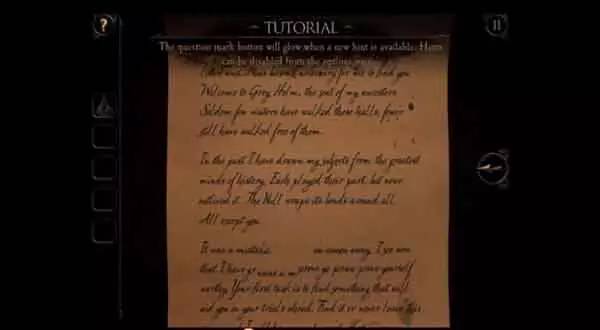 ?
TUTORIAL
The question mark button will glow when a new hint is available. Hints
can be disabled from the options menu.
find you
Welcome to Grey Holm, the seat of my ancestors
Seldom few visitors have walked these halls, fewer
still have walked free of them.
In the past I have drawn my subjects from the greatest
minds of history. Each played their part, but never
noticed it. The Null wraps its bonds around all.
All except you.
It was a mistake
that I have prove yourself
worthy. Your first task is to find something that will
aid you in your trials ahead. Find it or never leave this